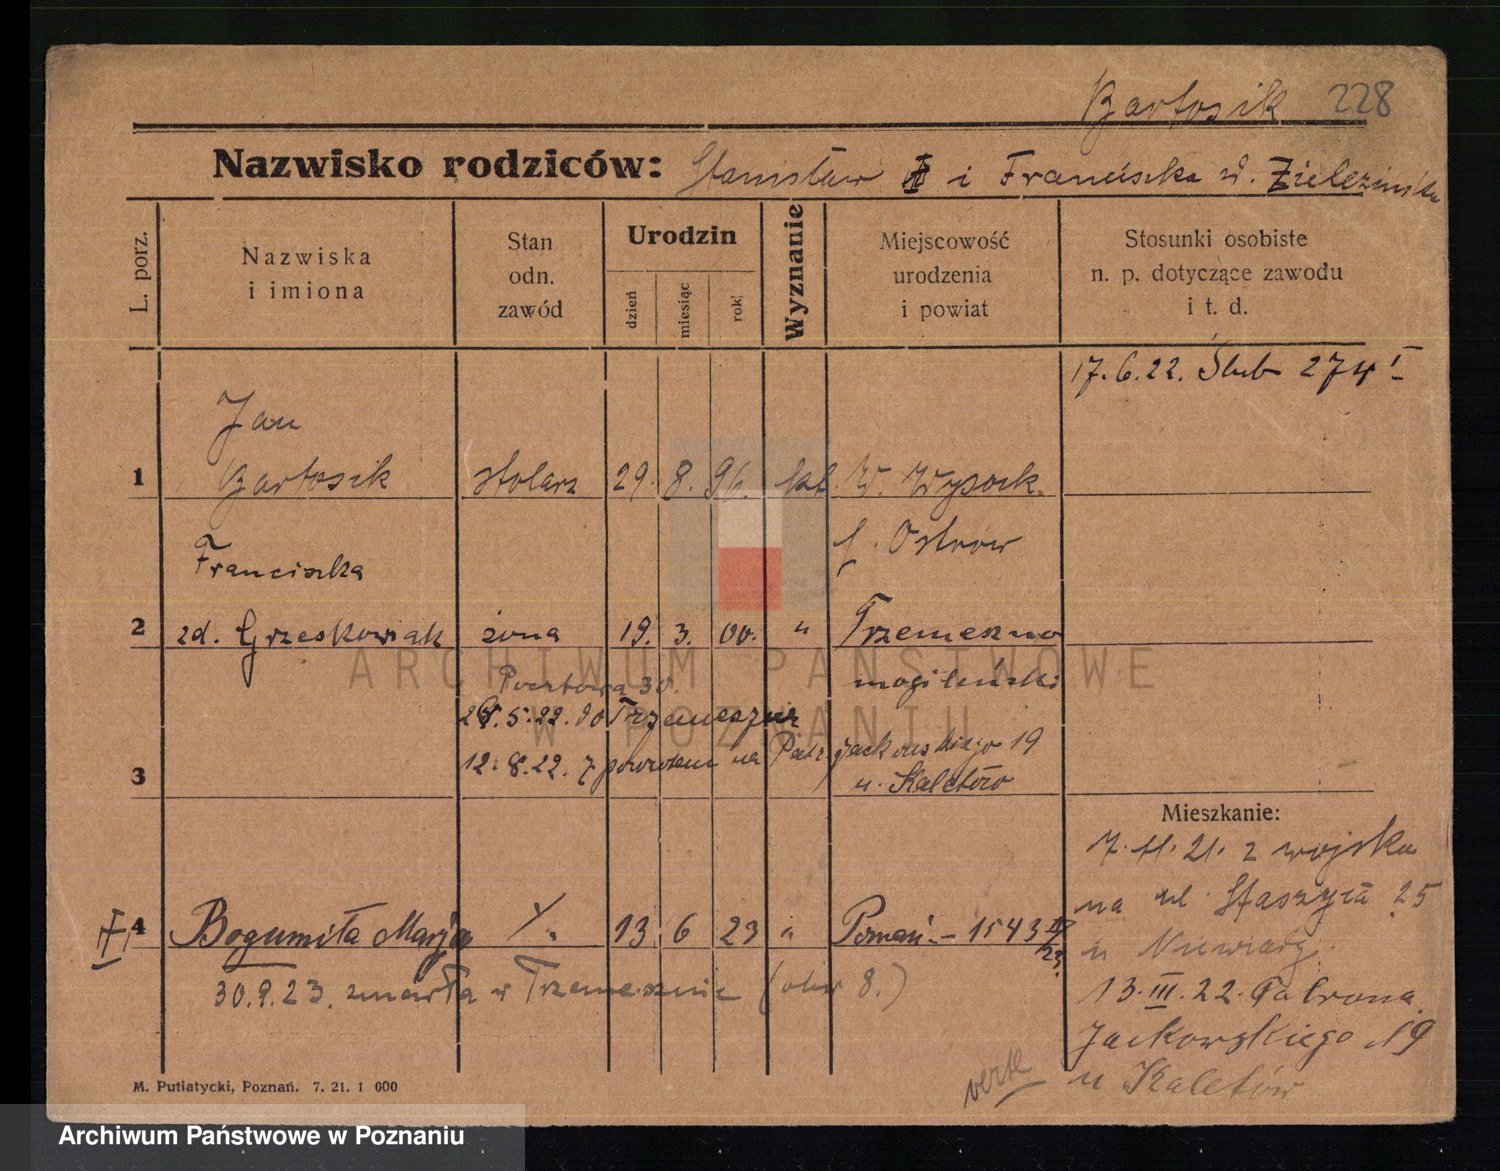 Bartosik 228
Nazwisko rodziców: Stanisław i Franciszka d. Zielezińska
L. porz.
Nazwiska i imiona
Stan odn. zawód
Urodzin
dzień
miesiąc
rok
Wyznanie
Miejscowość urodzenia i powiat
Stosunki osobiste n. p. dotyczące zawodu i t. d.
17.6.22. Ślub 274 I
Jan
1 Bartosik stolarz 29. 8. 96. kat. W. Wysock.
p. Ostrów
Franciszka
2 zd. Grzeskowiak żona 19. 3. 00. " Trzemeszno
mogileński
Pocztowa 30.
5.22. do Trzemeszna
3 12.8.22. z powrotem na Patr. Jackowskiego 19
u. Kaletów
Mieszkanie:
7.11.21. z wojska
na ul. Staszyca 25
u Niewiady
13.III.22. Patrona
Jackowskiego 19
u Kaletów
4 Bogumiła Marja /. 13 6 23 " Poznań - 1543 II/23.
30.9.23. zmarła w Trzemesznie (obw 8.)
verte
M. Putiatycki, Poznań. 7. 21. 1 000
ARCHIWUM PAŃSTWOWE
W POZNANIU
Archiwum Państwowe w Poznaniu